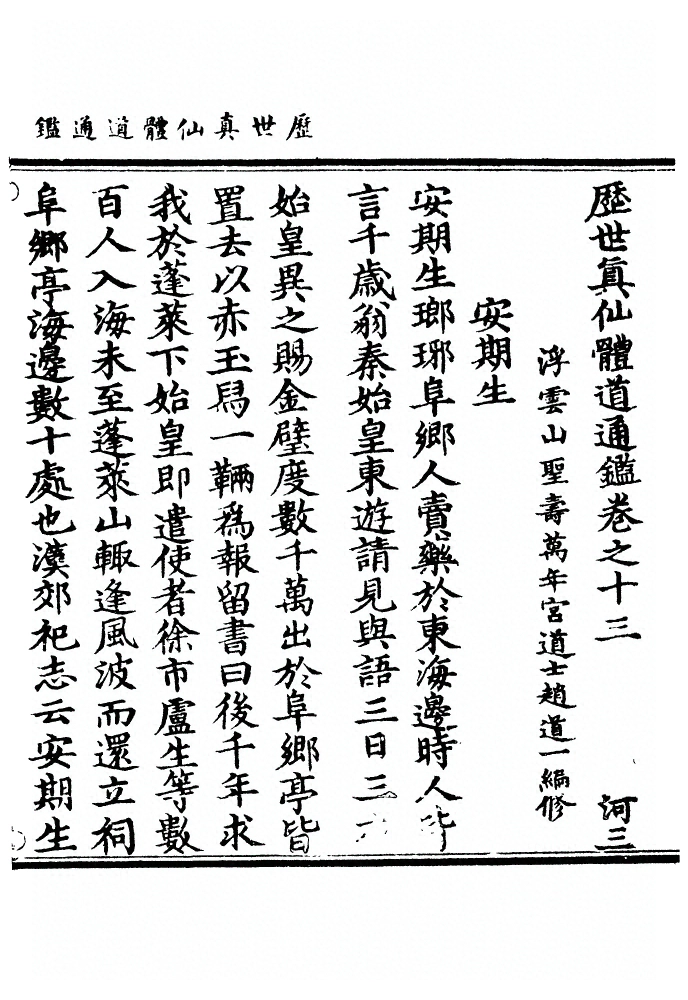 歷世真仙體道通鑑
歷世真仙體道通鑑卷之十三 河三
浮雲山聖壽萬年宮道士趙道一編修
安期生
安期生瑯琊阜鄉人賣藥於東海邊時人皆
言千歲翁秦始皇東遊請見與語三日三
始皇異之賜金璧度數千萬出於阜鄉亭皆
置去以赤玉舄一輛為報留書曰後千年求
我於蓬萊下始皇即遣使者徐市盧生等數
百人入海未至蓬萊山輒逢風波而還立祠
阜鄉亭海邊數十處也漢郊祀志云安期生